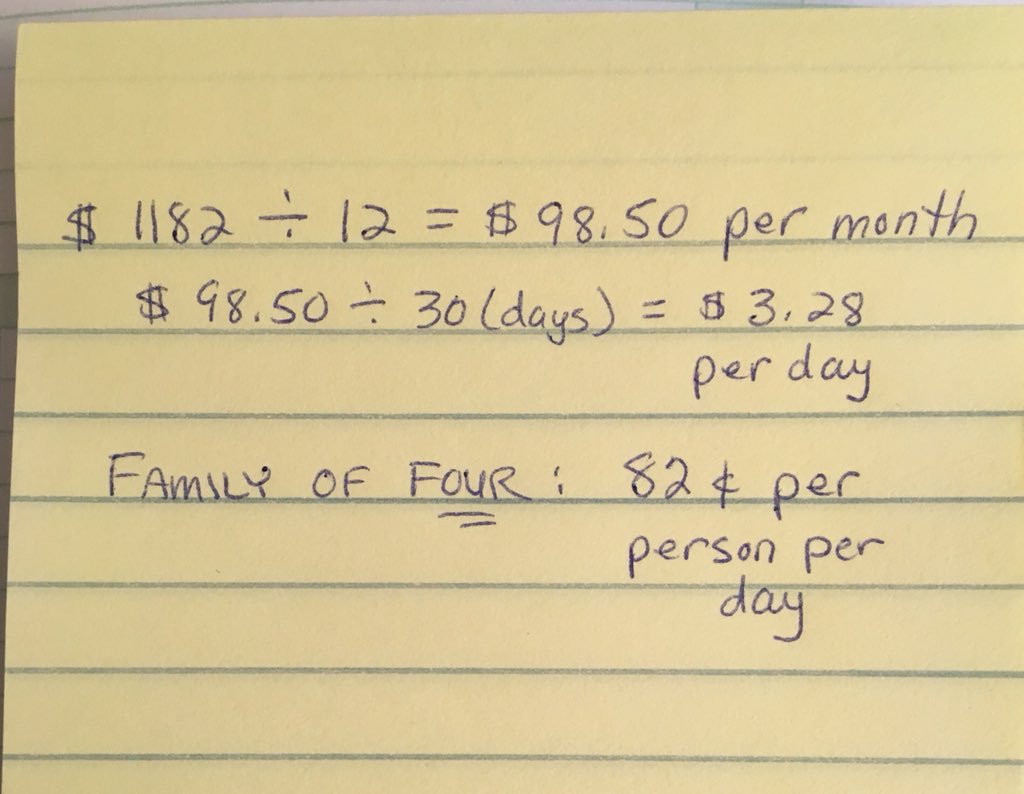 $ 1182 ÷ 12 = $ 98.50 per month
$ 98.50 ÷ 30 (days) = $ 3.28
per day
FAMILY OF FOUR: 82 ¢ per
person per
day